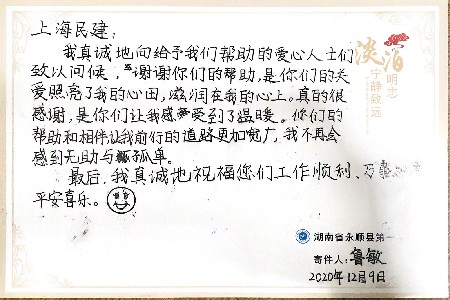 上海民建:
我真诚地向给予我们帮助的爱心人士们
致以问候,谢谢你们的帮助,是你们的关
爱照亮了我的心田,滋润在我的心上。真的很
感谢,是你们让我感受到了温暖。你们的
帮助和相伴让我前行的道路更加宽广,我不再会
感到无助与孤单。
最后,我真诚地祝福您们工作顺利、万
平安喜乐。
淡泊
明志
宁静致远
湖南省永顺县第一
寄件人:鲁敏
2020年12月9日